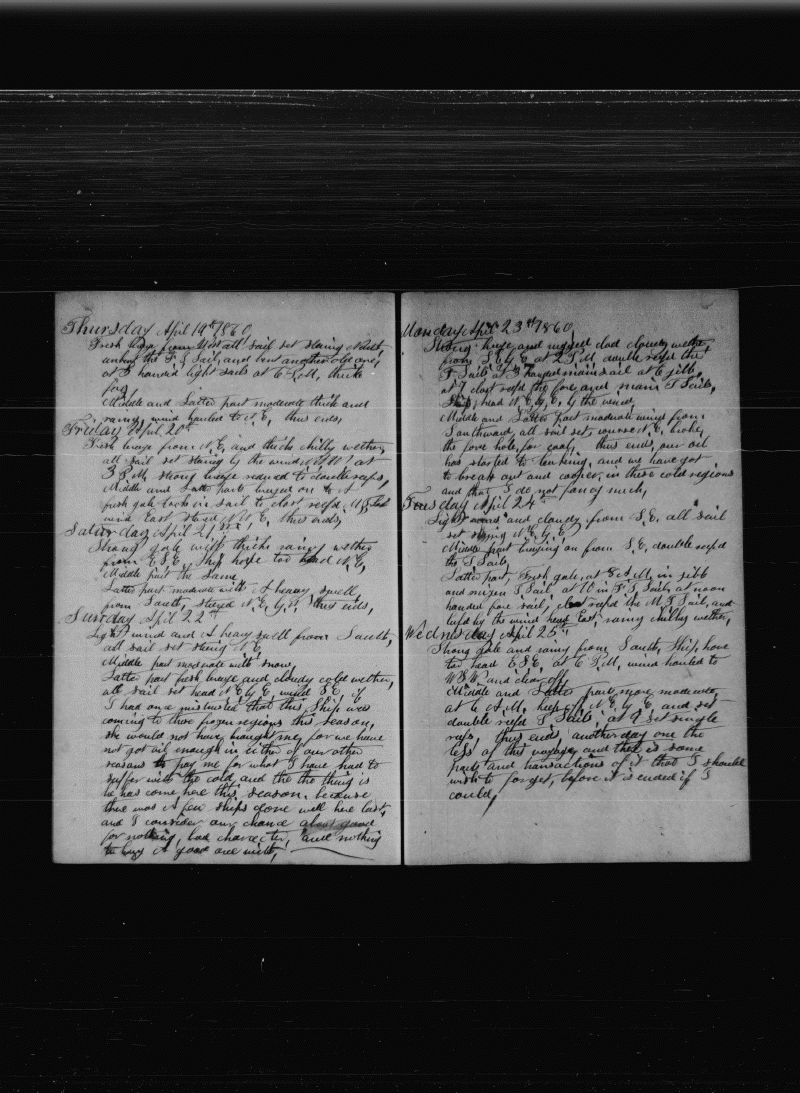 Thursday April 19th 1860,
Fresh breze from West all sail set stering N.N.E
unbent the F.T. Sail, and bent another old one,
at 5 handed light sails at 6 P.M, thick
fog,
Middle and Latter part moderate thick and
rainy, wind hauled to N.E, thus ends,
Friday April 20th
Fresh breze from N.E, and thick chilly wether,
all sail set stering by the wind N.N.W. at
3 P.M, strong breze reduced to double reefs,
Middle and Latter part, brezed on to A
fresh gale took in sail to clost reefd M.T. Sail
wind East sterd N.N.E, thus ends,
Saturday April 21st 1860
Strong gale with thick rainy wether
from E.S.E, Ship hove too head N.E,
Middle part the Same
Latter part moderate with A heavy swell
from South, sterd N.E, by N, thus ends,
Sunday April 22nd
Light wind and A heavy swell from South,
all sail set stering N.E,
Middle part moderate with snow,
Latter part fresh breze and cloudy cold wether,
all sail set head N.E by E, wind S.E, if
I had once mistrusted that this Ship was
coming to these frozen regions this season,
she would not have brought me, for we have
not got oil enough in either of our other
seasons to pay me for what I have had to
suffer with the cold and the the thing is
he has come here this season, because
there was A few ships done well here last,
and I consider our chance about good
for nothing, bad charecter, and nothing
to buy A good one with,
Monday April 23rd 1860,
Strong breze and rugged clad cloudy wether,
from S.E by E at 2 P.M double reefd the
T Sails at 3 handed mainsail at 6 jibb,
at 7 clost reefd the fore and main T Sails,
Ship, head N.E, by E, by the wind,
Middle and Latter part moderate wind from
Southward, all sail set, course N.E, broke,
the fore hole, for coal, thus ends, our oil
has started to leaking, and we have got
to break out and cooper, in these cold regions
and that I do not fancy much,
Tuesday April 24th
Light and cloudy, from S.E, all sail
set stering N.E, by E,
Middle part brezing on from S.E, double reefd
the T Sails
Latter part, Fresh gale, at 8 A.M, in jibb
and mizen T Sail, at 10 in F.T. Sail, at noon
handed fore sail, clost reefd the M.T. Sail, and
lufd by the wind head East, rainy chilly wether,
Wednesday April 25th
Strong gale and rainy from South, Ship, hove
too head E.S.E, at 6 P.M, wind hauled to
W.S.W. and clear off
Middle and Latter part, more moderate,
at 6 A.M. keep off N.E, by E, and set
double reefd T Sails, at 9 set single
reefs, thus ends another day one the
less of the voyage, and there is some
parts and transactions of it that I should
wish to forget, before it is ended if I
could,